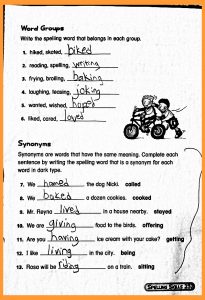 Word Groups
Write the spelling word that belongs in each group.
1. hiked, skated, biked
2. reading, spelling, writing
3. frying, broiling, baking
4. laughing, teasing, joking
5. wanted, wished, hoped
6. liked, cared, loved
Synonyms
Synonyms are words that have the same meaning. Complete each
sentence by writing the spelling word that is a synonym for each
word in dark type.
7. We named the dog Nicki. called
8. We baked a dozen cookies. cooked
9. Mr. Rayna lived in a house nearby. stayed
10. We are giving food to the birds. offering
11. Are you having ice cream with your cake? getting
12. I like living in the city. being
13. Rosa will be riding on a train. sitting